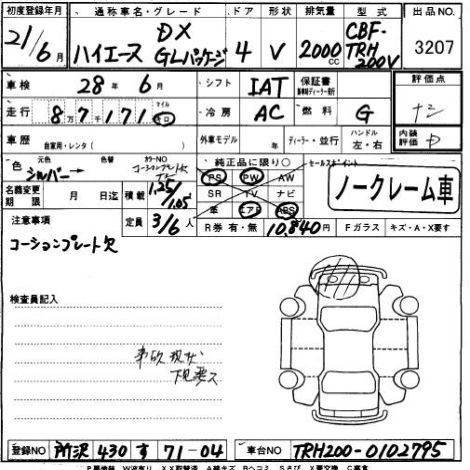 初度登録年月 通称車名・グレード ドア 形状 排気量 型式 出品NO.
21/6月 ハイエース DX GLパッケージ 4 V 2000cc CBF-TRH200V 3207
車検 28年 6月 シフト IAT 保証書 評価点
走行 8万7千171 マイル 冷房 AC 燃料 G
車歴 自家用・レンタ( ) 外車モデル 年 ディーラー・並行 ハンドル 左・右 内装評価 D
色 元色 シルバー 色替 カラーNO 純正品に限り○ セールスポイント
PS PW AW ノークレーム車
名義変更期限 月 日迄 積載 1.25/1.05 SR TV ナビ
定員 3/6人 革 エアB ABS
注意事項 R券 有・無 10,840円 Fガラス キズ・A・X要す
コーションプレート欠
検査員記入
事故現状
下見要ス
登録NO 所沢 430 す 71-04 車台NO TRH200-0102795